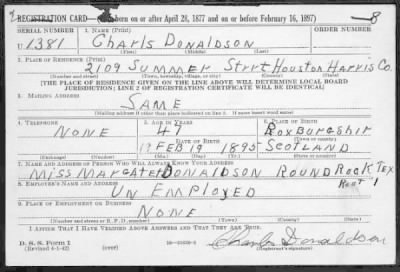 REGISTRATION CARD—(Men born on or after April 28, 1877 and on or before February 16, 1897) 8
SERIAL NUMBER 1. NAME (Print) ORDER NUMBER
U 1381 Charls Donaldson
(First) (Middle) (Last)
2. PLACE OF RESIDENCE (Print)
2109 Summer Stret Houston Harris Co
(Number and street) (Town, township, village, or city) (County) (State)
[THE PLACE OF RESIDENCE GIVEN ON THE LINE ABOVE WILL DETERMINE LOCAL BOARD
JURISDICTION; LINE 2 OF REGISTRATION CERTIFICATE WILL BE IDENTICAL]
3. MAILING ADDRESS
SAME
[Mailing address if other than place indicated on line 2. If same insert word same]
4. TELEPHONE 5. AGE IN YEARS 6. PLACE OF BIRTH
NONE 47 Roxburgshir
DATE OF BIRTH (Town or county)
19 FEB 19 1895 Scotland
(Exchange) (Number) (Mo.) (Day) (Yr.) (State or country)
7. NAME AND ADDRESS OF PERSON WHO WILL ALWAYS KNOW YOUR ADDRESS
Miss Margate Donaldson Round Rock Tex
8. EMPLOYER'S NAME AND ADDRESS Rout 1
Un Employed
9. PLACE OF EMPLOYMENT OR BUSINESS
NONE
(Number and street or R. F. D. number) (Town) (County) (State)
I AFFIRM THAT I HAVE VERIFIED ABOVE ANSWERS AND THAT THEY ARE TRUE.
D. S. S. Form 1
(Revised 4-1-42) (over) Charles Donaldson
(Registrant's signature)